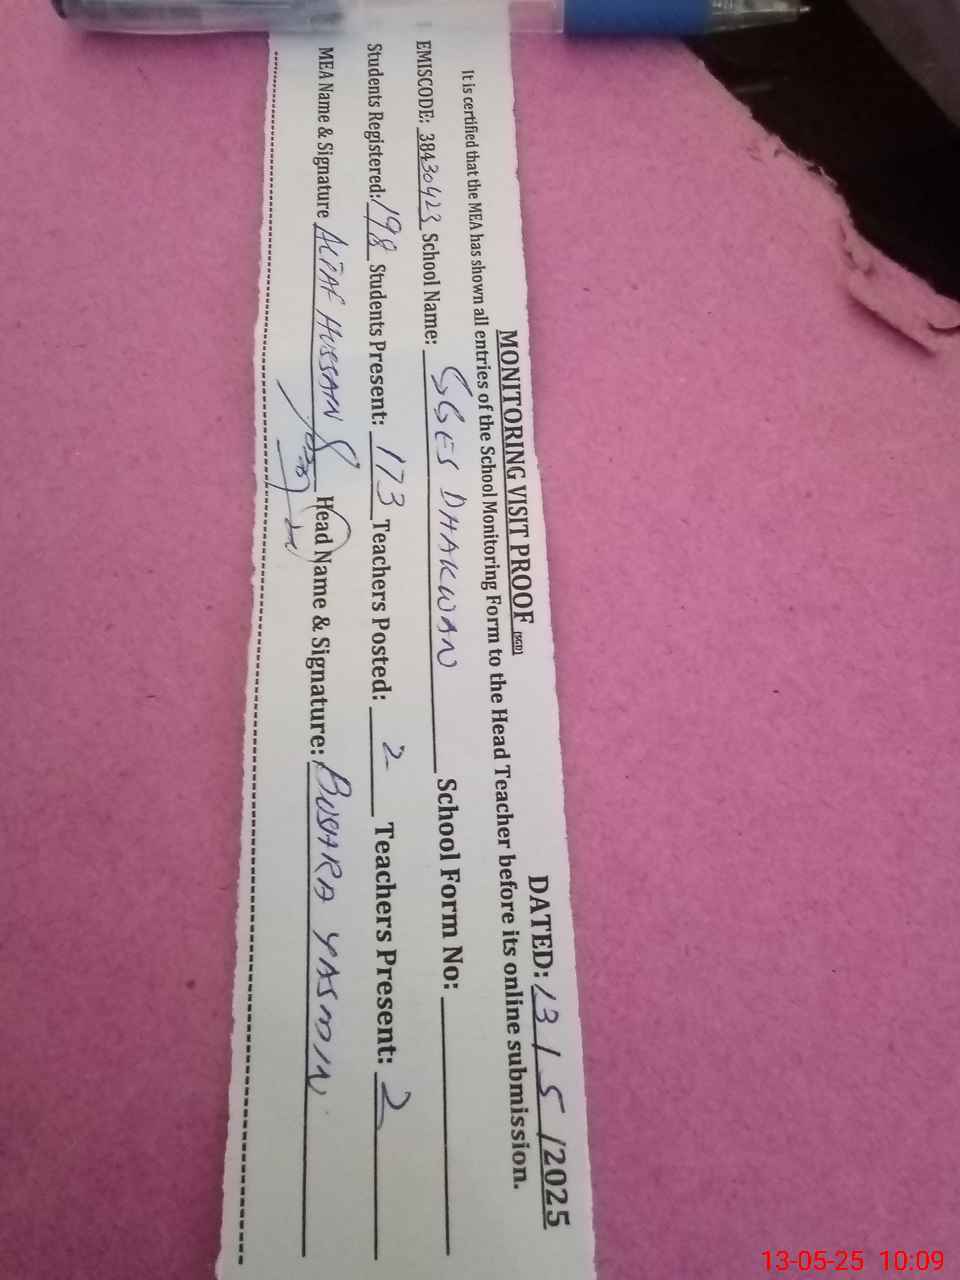 MONITORING VISIT PROOF [SGD] DATED: 13 / 5 /2025
It is certified that the MEA has shown all entries of the School Monitoring Form to the Head Teacher before its online submission.
EMISCODE: 38430423 School Name: GGES DHAKWAN School Form No:
Students Registered: 198 Students Present: 173 Teachers Posted: 2 Teachers Present: 2
MEA Name & Signature ALTAF HUSSAIN Head Name & Signature: BUSHRA YASMIN
13-05-25 10:09